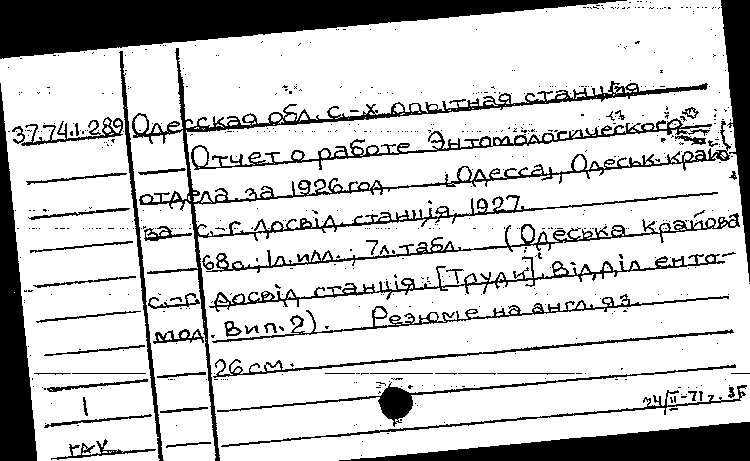 37.74.1.289 Одесская обл. с.-х. опытная станция
Отчет о работе Энтомологического
отдела за 1926 год. [Одесса], Одеськ. крайо-
ва с.-г. досвід. станція, 1927.
68 с.; 1 л. илл.; 7 л. табл. (Одеська крайова
с.-г. досвід станція. [Труди]. Відділ енто-
мол. Вип. 2). Резюме на англ. яз.
26 см.
1
24/II-71 г.